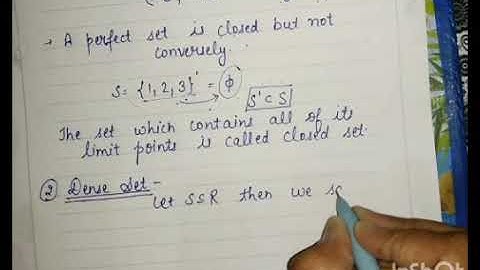 → A perfect set is closed but not
conversely.
S = {1, 2, 3}' = ϕ
S' ⊂ S
The set which contains all of its
limit points is called closed set.
② Dense Set -
Let S ⊆ R then we s